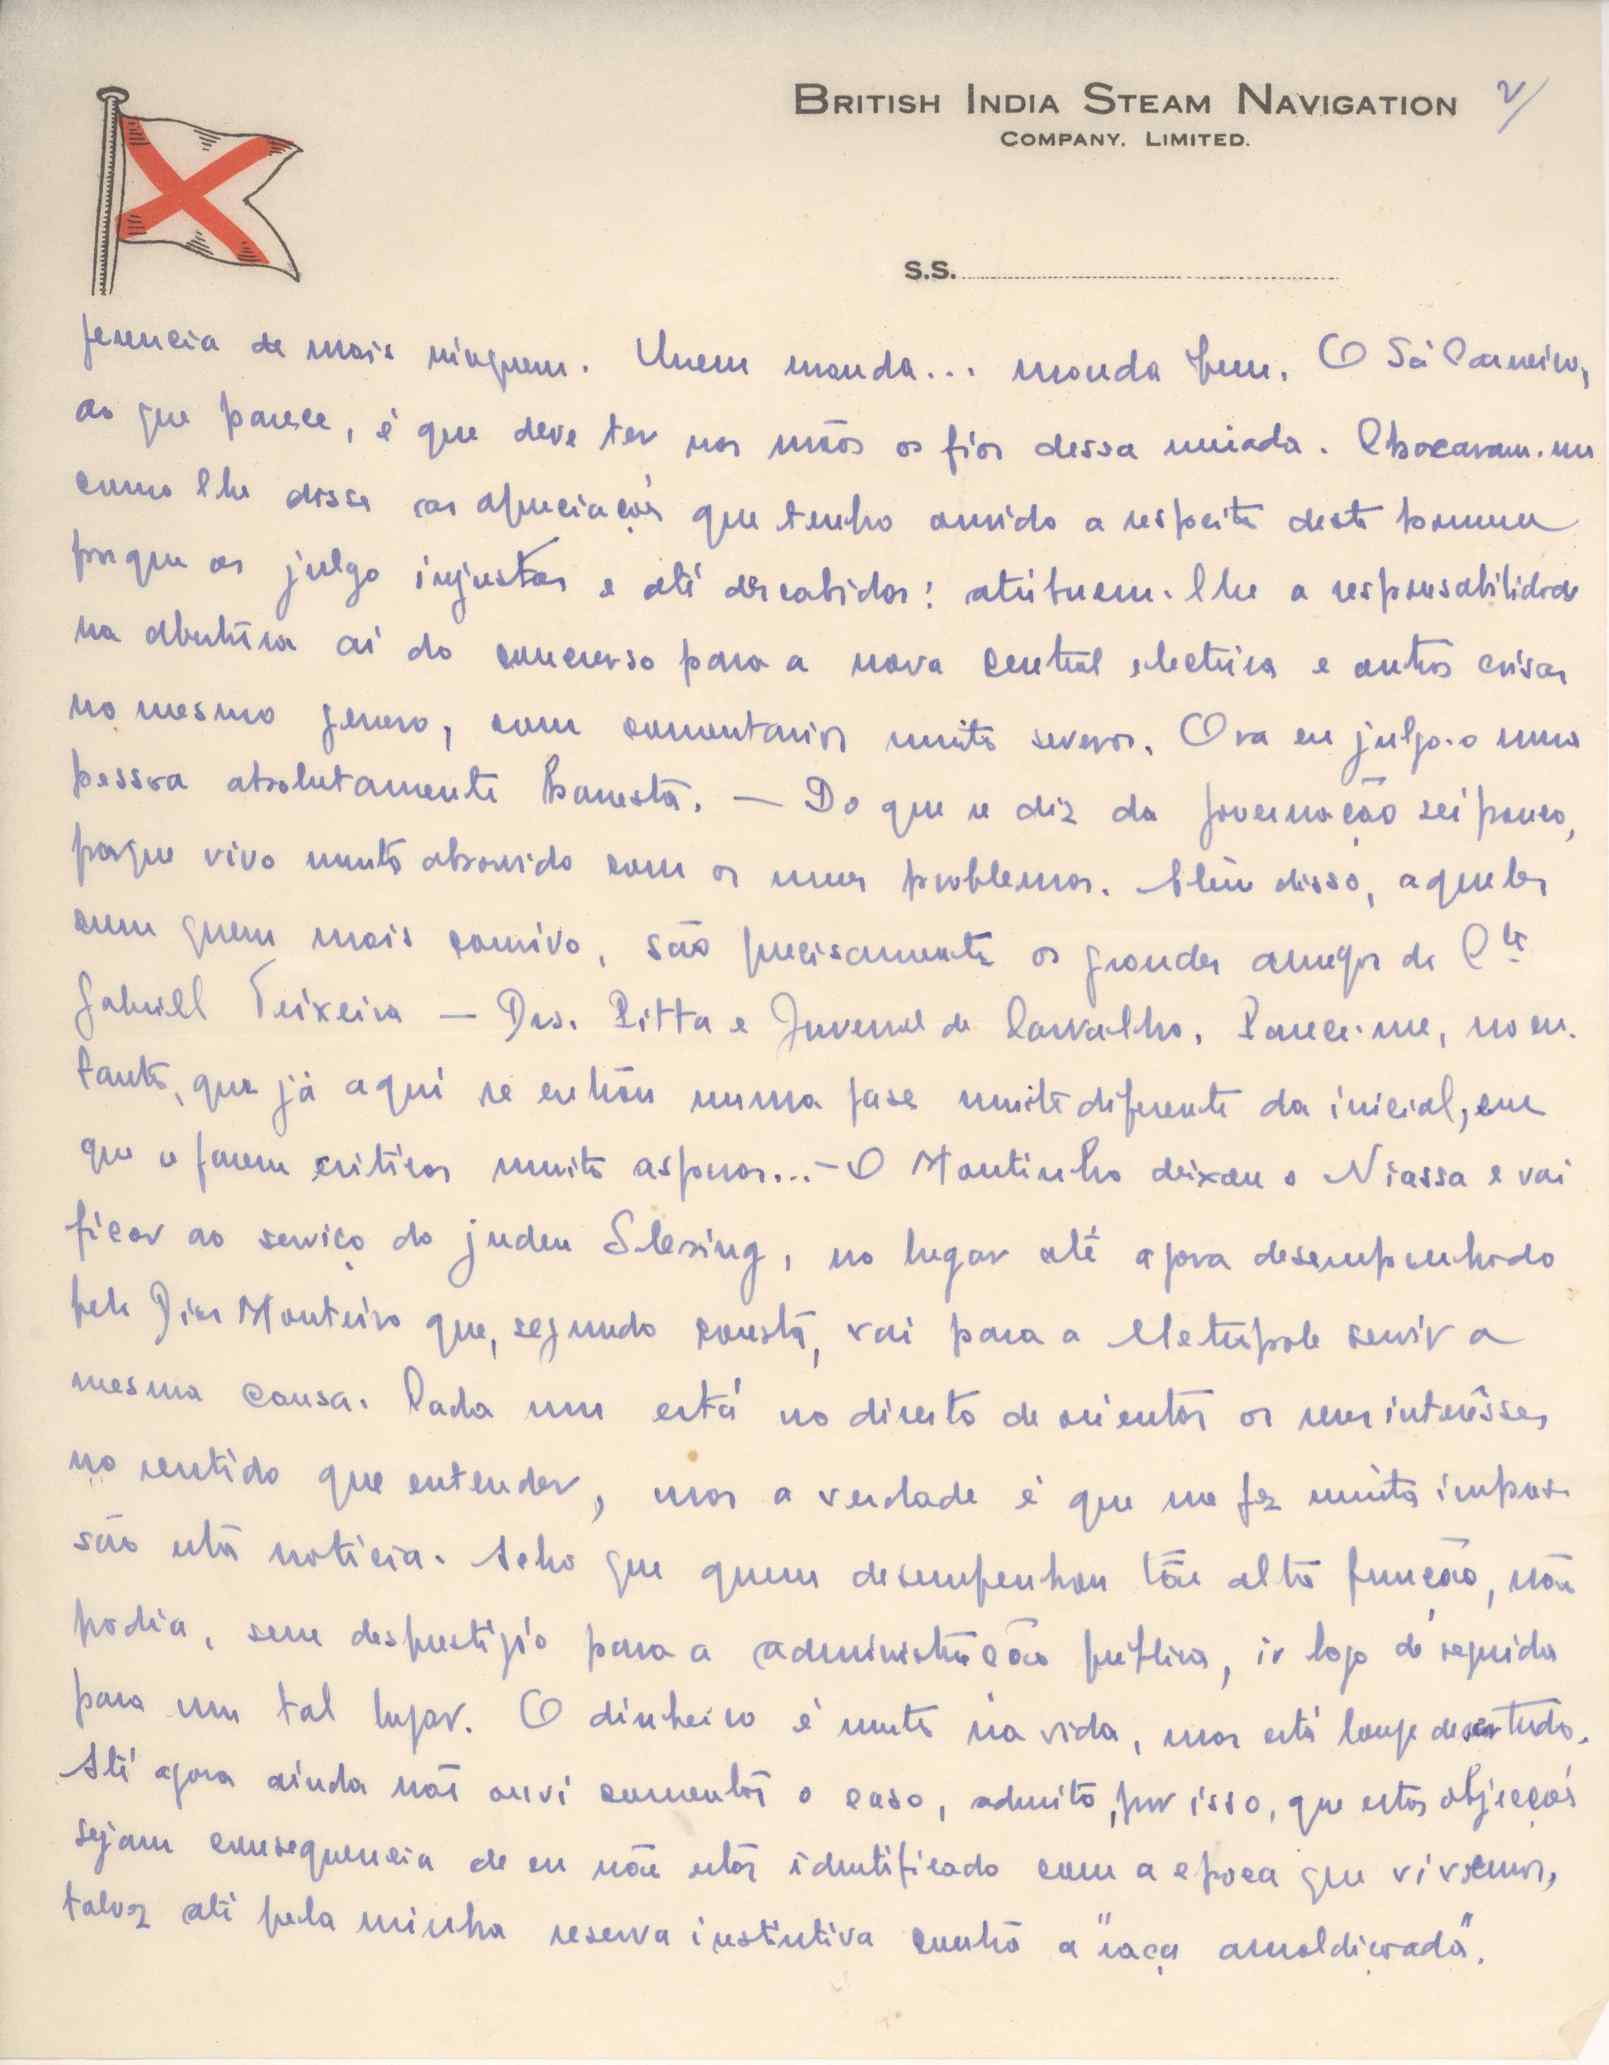 BRITISH INDIA STEAM NAVIGATION 2/
COMPANY. LIMITED.
S.S.
ferencia de mais ninguem. Quem manda... manda bem. O Sá Carneiro,
ao que parece, é que deve ter nas mãos os fios dessa meada. Chocaram-me
como lhe disse as apreciações que tenho ouvido a respeito deste homem
porque as julgo injustas e até descabidas: atribuem-lhe a responsabilidade
na abertura aí do concurso para a nova central electrica e outras coisas
no mesmo genero, com comentarios muito severos. Ora eu julgo-o uma
pessoa absolutamente honesta. — Do que se diz da governação sei pouco,
porque vivo muito absorvido com os meus problemas. Além disso, aqueles
com quem mais convivo, são precisamente os grandes amigos do Cte
Gabriel Teixeira — Drs. Pitta e Juvenal de Carvalho. Parece-me, no en-
tanto, que já aqui se entrou numa fase muito diferente da inicial, em
que se faziam criticas muito asperas... - O Moutinho deixou o Niassa e vai
ficar ao serviço do judeu Slesing, no lugar até agora desempenhado
pelo Dias Monteiro que, segundo consta, vai para a Metropole servir a
mesma causa. Cada um está no direito de orientar os seus interêsses
no sentido que entender, mas a verdade é que me fez muita impres-
são esta noticia. Acho que quem desempenhou tão alta função, não
podia, sem desprestigio para a administração publica, ir logo de seguida
para um tal lugar. O dinheiro é muito na vida, mas está longe de ser tudo.
Até agora ainda não ouvi comentar o caso, admito, por isso, que estas objecções
sejam consequencia de eu não estar identificado com a epoca que vivemos,
talvez até pela minha reserva instintiva contra a "raça amaldiçoada".